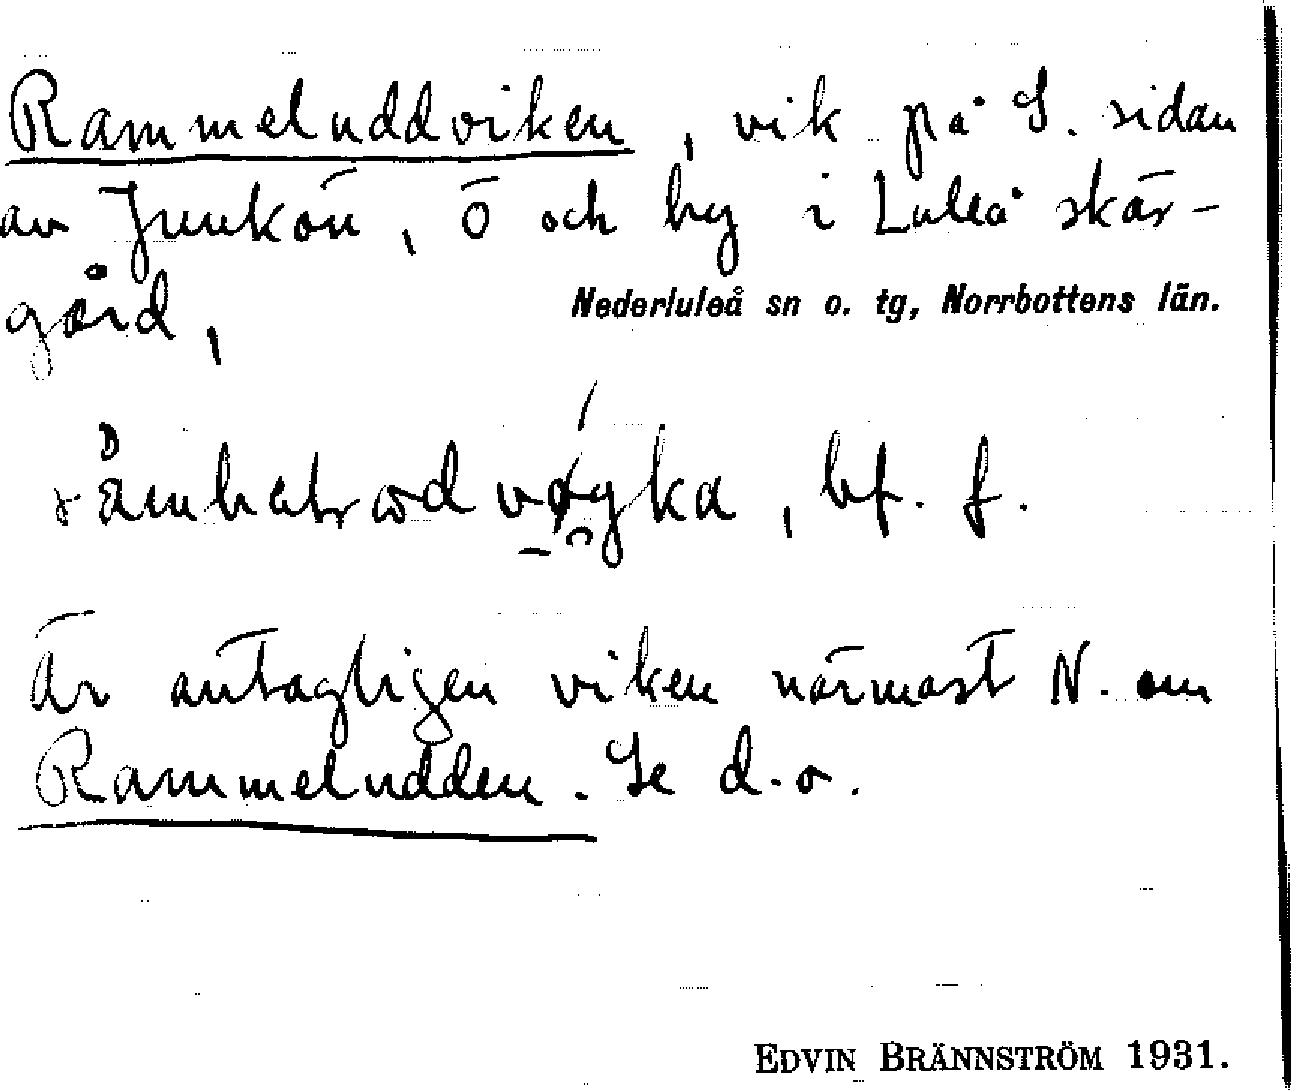 Rammeluddviken, vik på S. sidan
av Junkön, ö och by i Luleå skär-
gård,
Nederluleå sn o. tg, Norrbottens län.
, bf. f.
Är antagligen viken närmast N. om
Rammeludden. Se d.o.
EDVIN BRÄNNSTRÖM 1931.